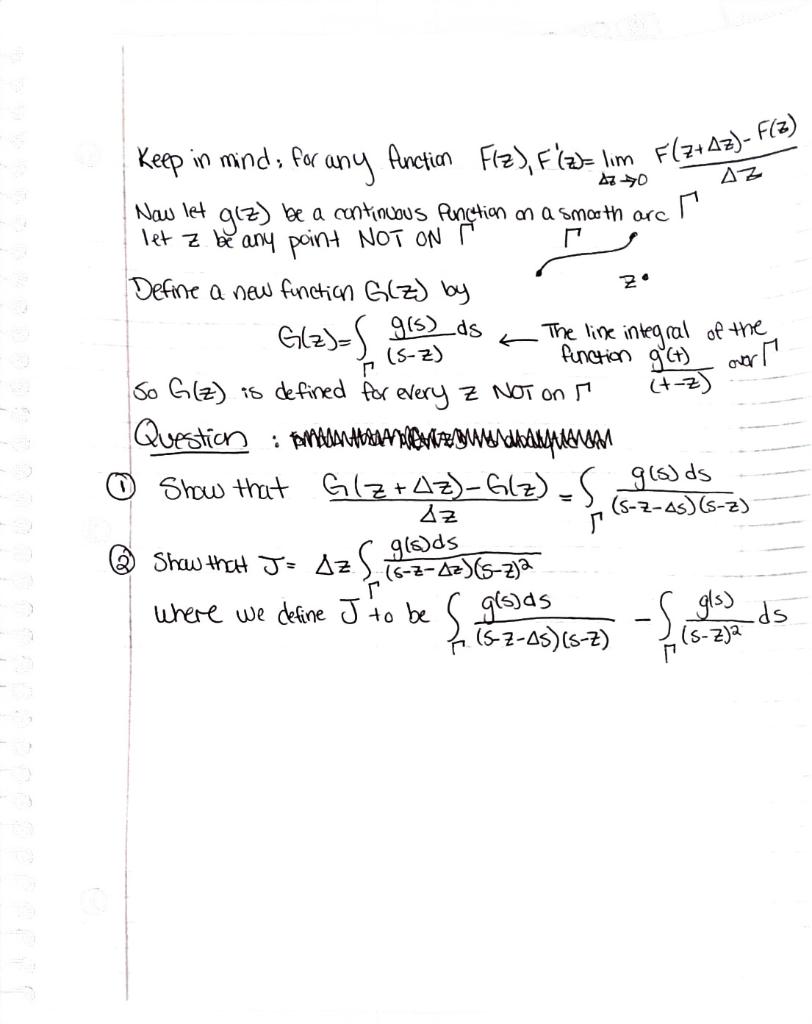 Keep in mind: for any function F(z), F'(z) = lim Δz→0 F(z+Δz) - F(z) / Δz
Now let g(z) be a continuous function on a smooth arc Γ
let z be any point NOT ON Γ
Γ
z
Define a new function G(z) by
G(z) = ∫Γ g(s) ds / (s-z) ← The line integral of the
function g(t) / (t-z) over Γ
So G(z) is defined for every z NOT on Γ
Question :
① Show that G(z+Δz) - G(z) / Δz = ∫Γ g(s) ds / (s-z-Δs)(s-z)
② Show that J = Δz ∫Γ g(s) ds / (s-z-Δz)(s-z)²
where we define J to be ∫Γ g(s) ds / (s-z-Δs)(s-z) - ∫Γ g(s) / (s-z)² ds